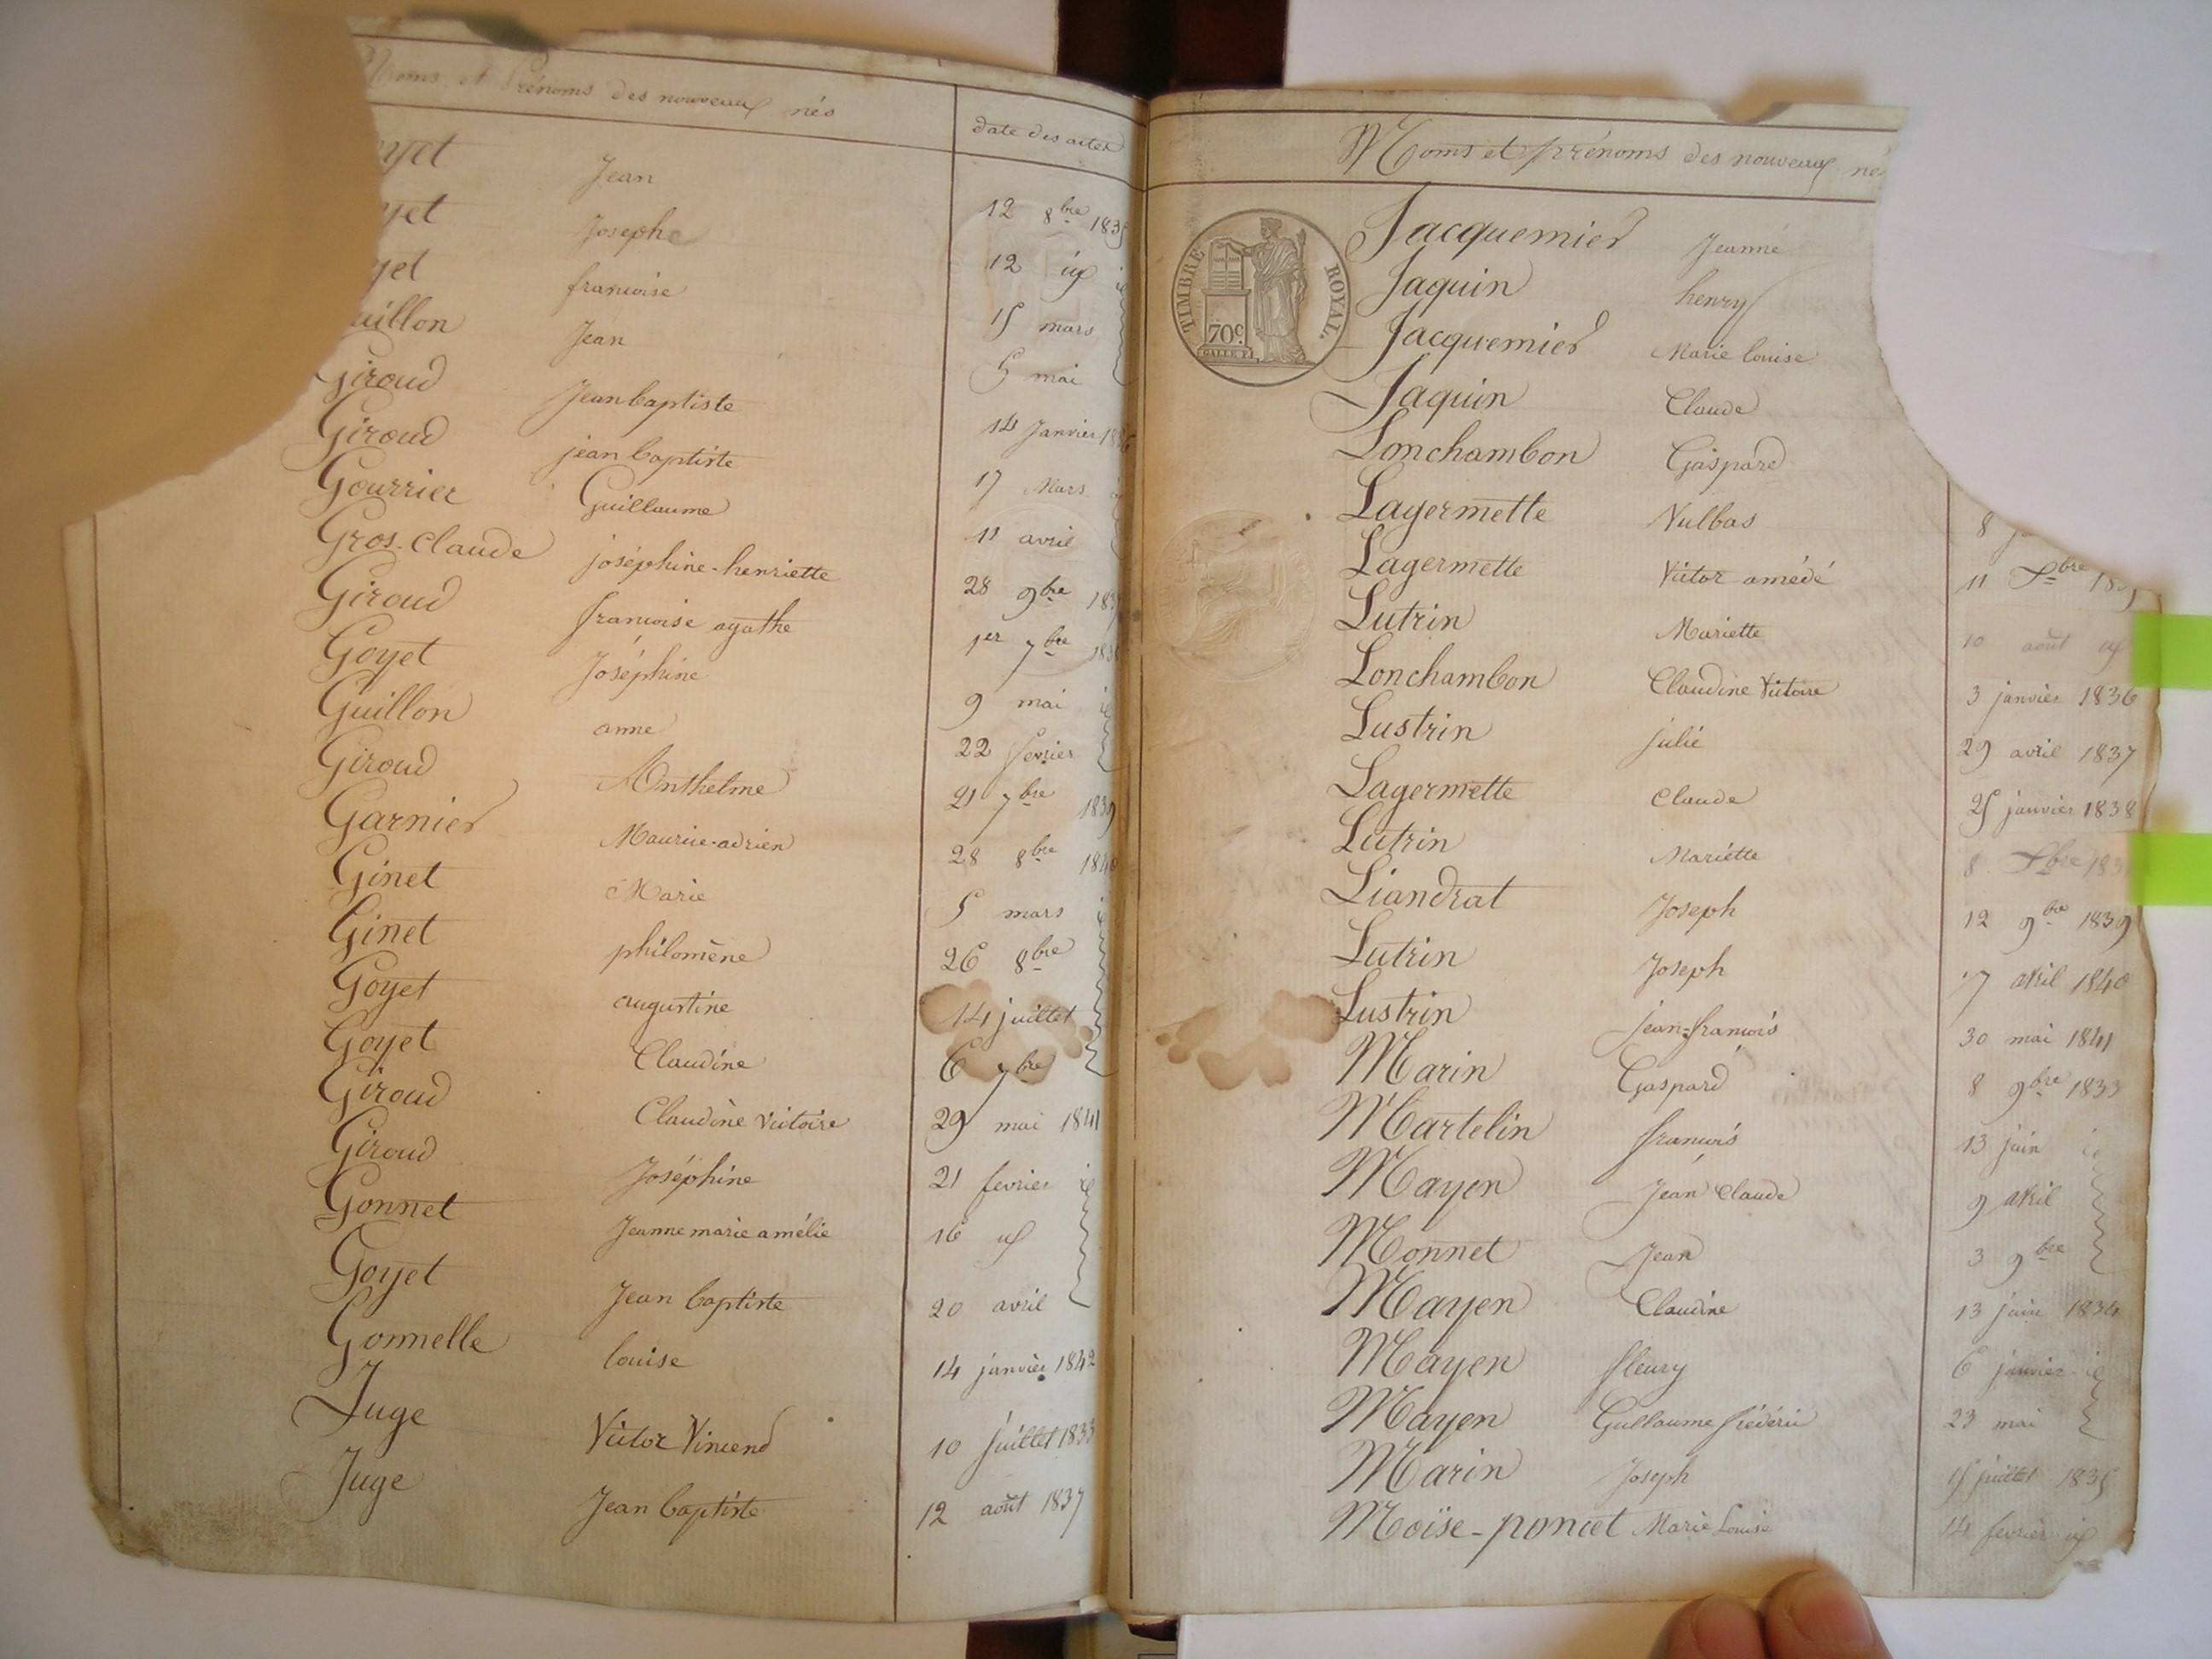 Noms et Prénoms des nouveaux nés date des actes
yet Jean 12 8bre 1835
yet Josephe 12 id
yet francoise 15 mars
uillon Jean 5 mai
Giroud Jean baptiste 14 Janvier 1836
Giroud jean baptiste 17 Mars
Gourrier Guillaume 11 avril
Gros-Claude joséphine-henriette 28 9bre
Giroud francoise agathe 1er 7bre
Goyet Joséphine 9 mai
Guillon anne 22 fevrier
Giroud Anthelme 21 7bre 1839
Garnier Maurice-adrien 28 8bre 1840
Ginet Marie 5 mars
Ginet philomène 26 8bre
Goyet augustine 14 juillet
Goyet Claudine 6 7bre
Giroud Claudine Victoire 29 mai 1841
Giroud Joséphine 21 fevrier id
Gonnet Jeanne marie amélie 16 id
Goyet Jean baptiste 20 avril
Gonnelle louise 14 janvier 1842
Juge Victor Vincend 10 Juillet 1833
Juge Jean baptiste 12 août 1837
Noms et prénoms des nouveaux né
TIMBRE ROYAL.
70c
GALLE F.
Jacquemier Jeanne
Jaquin henry
Jacquemier Marie louise
Jaquin Claude
Lonchambon Gaspard
Lagermette Vulbas 8
Lagermette Victor amédé 11 Xbre
Lutrin Mariette 10 août id
Lonchambon Claudine Victoire 3 janvier 1836
Lustrin julie 29 avril 1837
Lagermette Claude 25 janvier 1838
Lutrin Mariette 8 Xbre
Liandrat Joseph 12 9bre 1839
Lutrin Joseph 17 avril 1840
Lustrin jean-francois 30 mai 1841
Marin Gaspard 8 9bre 1833
Martelin francois 13 juin id
Mayen Jean Claude 9 avril
Monnet Jean 3 9bre
Mayen Claudine 13 juin 1834
Mayen fleury 6 janvier id
Mayen Guillaume frédéric 23 mai
Marin Joseph 15 juillet 1835
Moïse-poncet Marie Louise 14 fevrier id